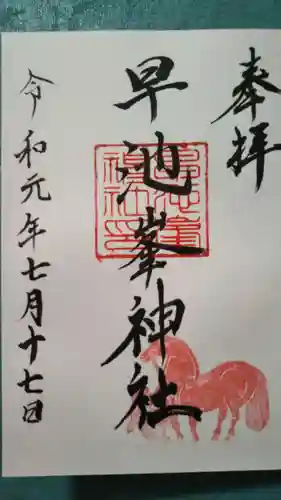 奉拝
早池峯神社
令和元年七月十七日